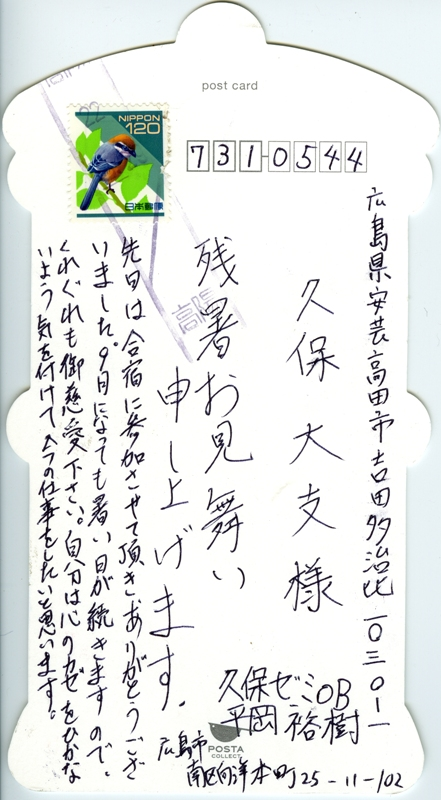 post card
NIPPON
120
日本郵便
高陽
731-0544
広島県安芸高田市吉田多治比一〇三〇ー一
久保大支様
残暑お見舞い
申し上げます。
先日は合宿に参加させて頂き、ありがとうござ
いました。9月になっても暑い日が続きますので、
くれぐれも御慈愛下さい。自分は心のカゼをひかな
いよう気を付けて今の仕事をしたいと思います。
久保ゼミOB
平岡裕樹
広島市
南区向洋本町25-11-102
POSTA
COLLECT